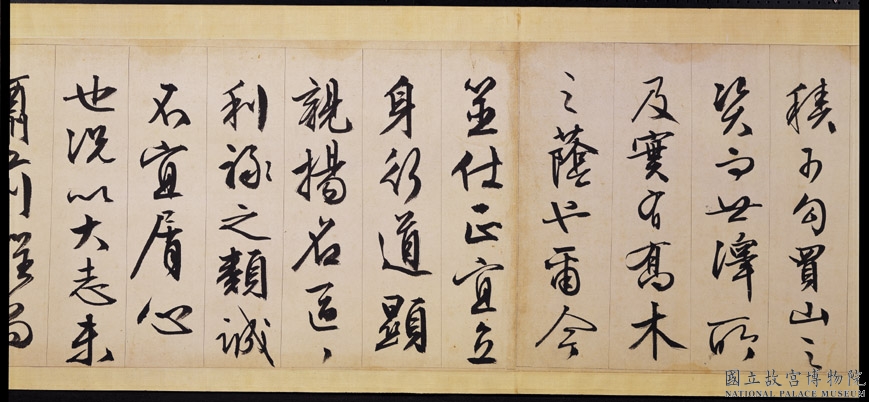 積不勾買山之
資而世澤所
及實有喬木
之蔭也爾今
筮仕正宜立
身行道顯
親揚名區〻
利祿之類誠
不宜屑心
也況以大志未
國立故宮博物院
NATIONAL PALACE MUSEUM